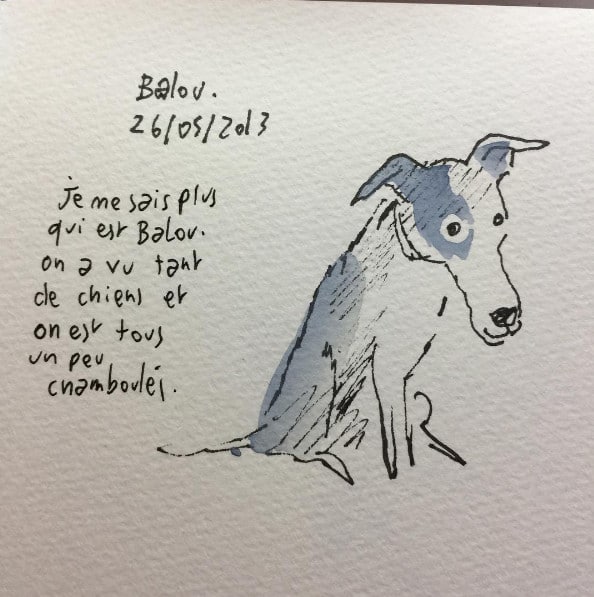 Balou.
26/05/2013
je me sais plus
qui est Balou.
on a vu tant
de chiens et
on est tous
un peu
chamboulés.